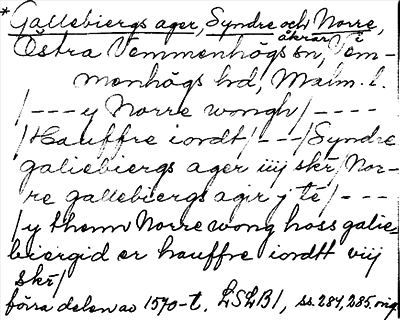 * Gallebiergs ager, Syndre och Norre,
åkrar i
Östra Vemmenhögs sn, Vem-
menhögs hd, Malm. l.
/---y Norre wongh/----
/Hauffre iordt/---/Syndre
galiebiergs ager iiij skr/Nor-
re gallebiergs agir j te/---
/y themn Norre wong hoss galie-
biergid er hauffre iordtt viij
skr/
förra delen av 1570-t. LSLB1, ss. 284, 285. orig.